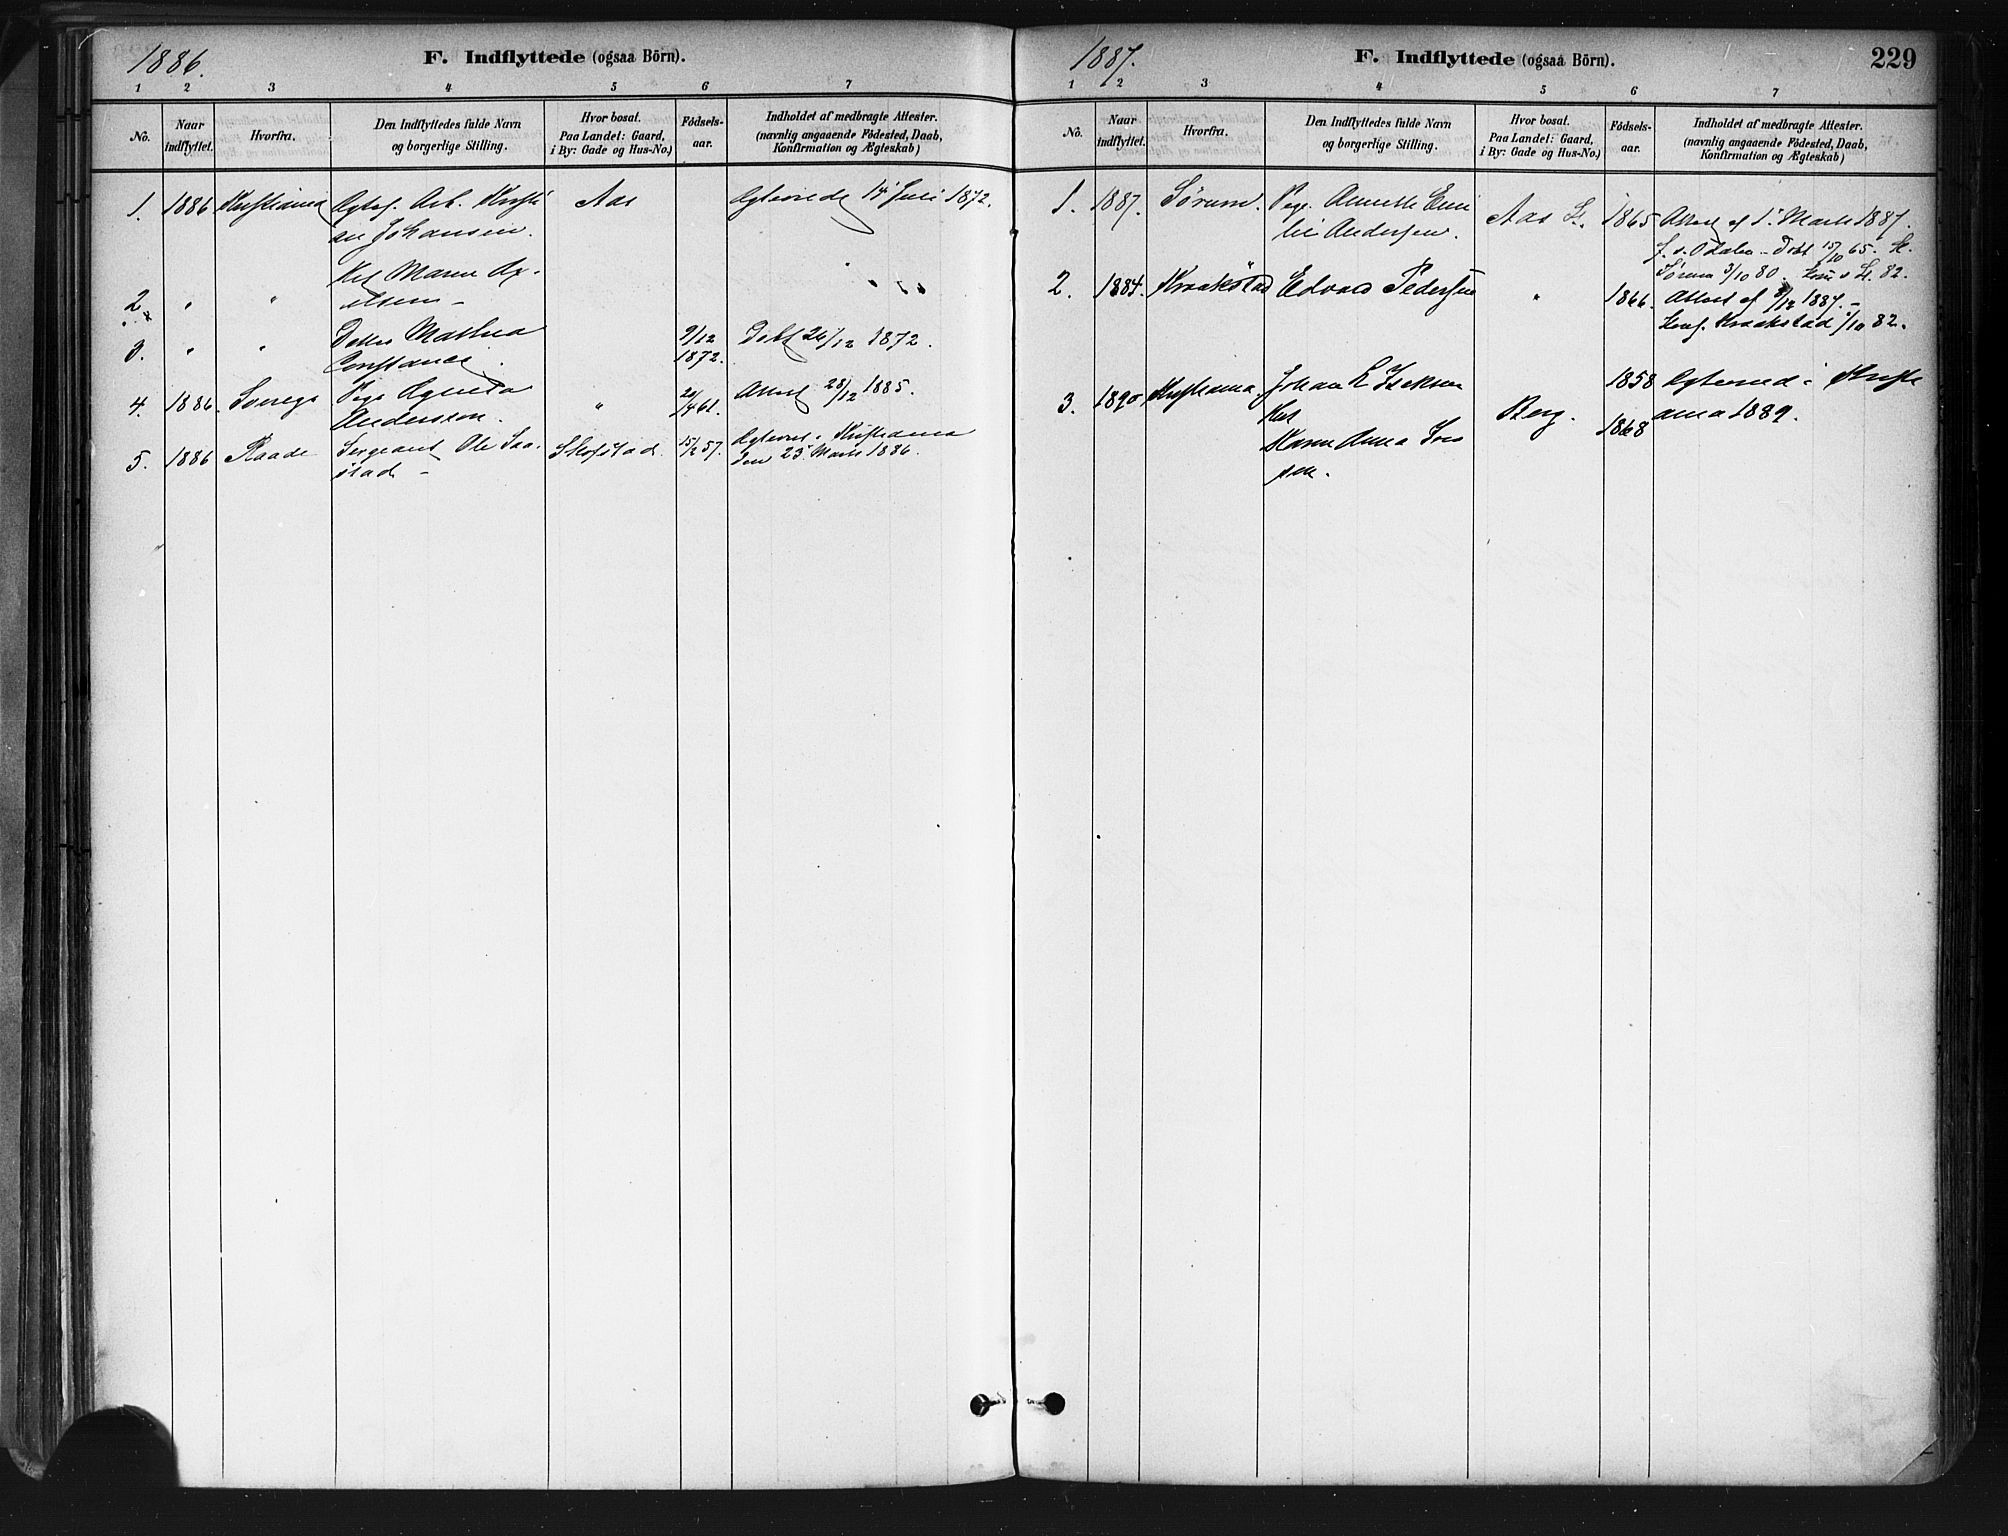 1886.
F. Indflyttede (ogsaa Börn).
1 2 3 4 5 6 7
No.
Naar indflyttet.
Hvorfra.
Den Indflyttedes fulde Navn
og borgerlige Stilling.
Hvor bosat.
Paa Landet: Gaard,
i By: Gade og Hus-No.)
Fødsels-
aar.
Indholdet af medbragte Attester.
(navnlig angaaende Födested, Daab,
Konfirmation og Ægteskab)
1. 1886 Kristiania Arb. Kristi Aas 14 Juli 1872.
an Johansen.
2 " " Maren
3. " " Mathea 9/12 Døbt 26/12 1872.
Constance 1872.
4. 1886 Pige " Attest 28/12 1885.
Andersson.
5. 1886 Raade Sergeant Ole Saa- Skofstad 15/2 57. Kristiania
stad - den 25 Marts 1886.
1887.
F. Indflyttede (ogsaa Börn).
229
1 2 3 4 5 6 7
No.
Naar indflyttet.
Hvorfra.
Den Indflyttedes fulde Navn
og borgerlige Stilling.
Hvor bosat.
Paa Landet: Gaard,
i By: Gade og Hus-No.)
Fødsels-
aar.
Indholdet af medbragte Attester.
(navnlig angaaende Födested, Daab,
Konfirmation og Ægteskab)
1. 1887. Sørum. Pige Annette Emi Aas 1865 Attest af 1. Marts 1887.
lie Andersen. f. s. Odalen - Døbt 15/10 65.
Sørum 3/10 80.
2. 1884. Kraakstad Edvard Pedersen " 1866. Attest af 1887.-
Konf. Kraakstad 1/10 82.
3. 1890 Kristiania Johan Isaksen Berg. 1858 i Kristi
1868 ania 1889.
Karen Anna
sen.